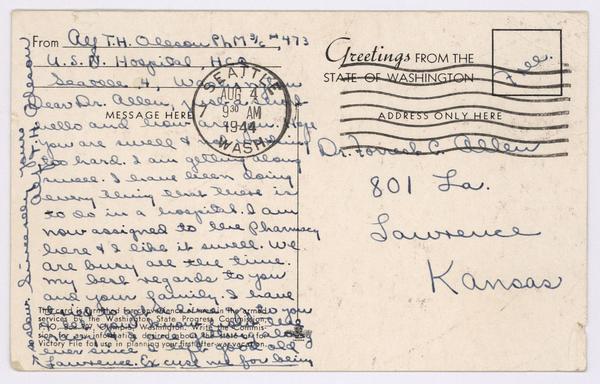 From Alf T.H. Oleson PhM 3/c #473
U.S.N. Hospital, HCQ
Seattle 4, Wash.
Dear Dr. Allen, Just a
MESSAGE HERE
hello and how are you. I hope
you are swell &
too hard. I am getting along
swell. I have been doing
every thing that there is
to do in a hospital. I am
now assigned to the Pharmacy
here & I like it swell. We
are busy all the time.
my best regards to you
and your family. I have
ever since I left good old
Lawrence. Excuse me for being
so slow. Sincerely Yours
Alf T.H. Oleson
This card is printed for convenience of men in the armed
services by the Washington State Progress Commission,
Washington. Write the Commis-
sion for any information desired about the state or for
Victory File for use in planning your first after-war vacation.
SEATTLE
AUG 4
7
9 30 AM
1944
WASH.
Greetings FROM THE
STATE OF WASHINGTON
Free
ADDRESS ONLY HERE
Dr. Forrest C. Allen
801 La.
Lawrence
Kansas